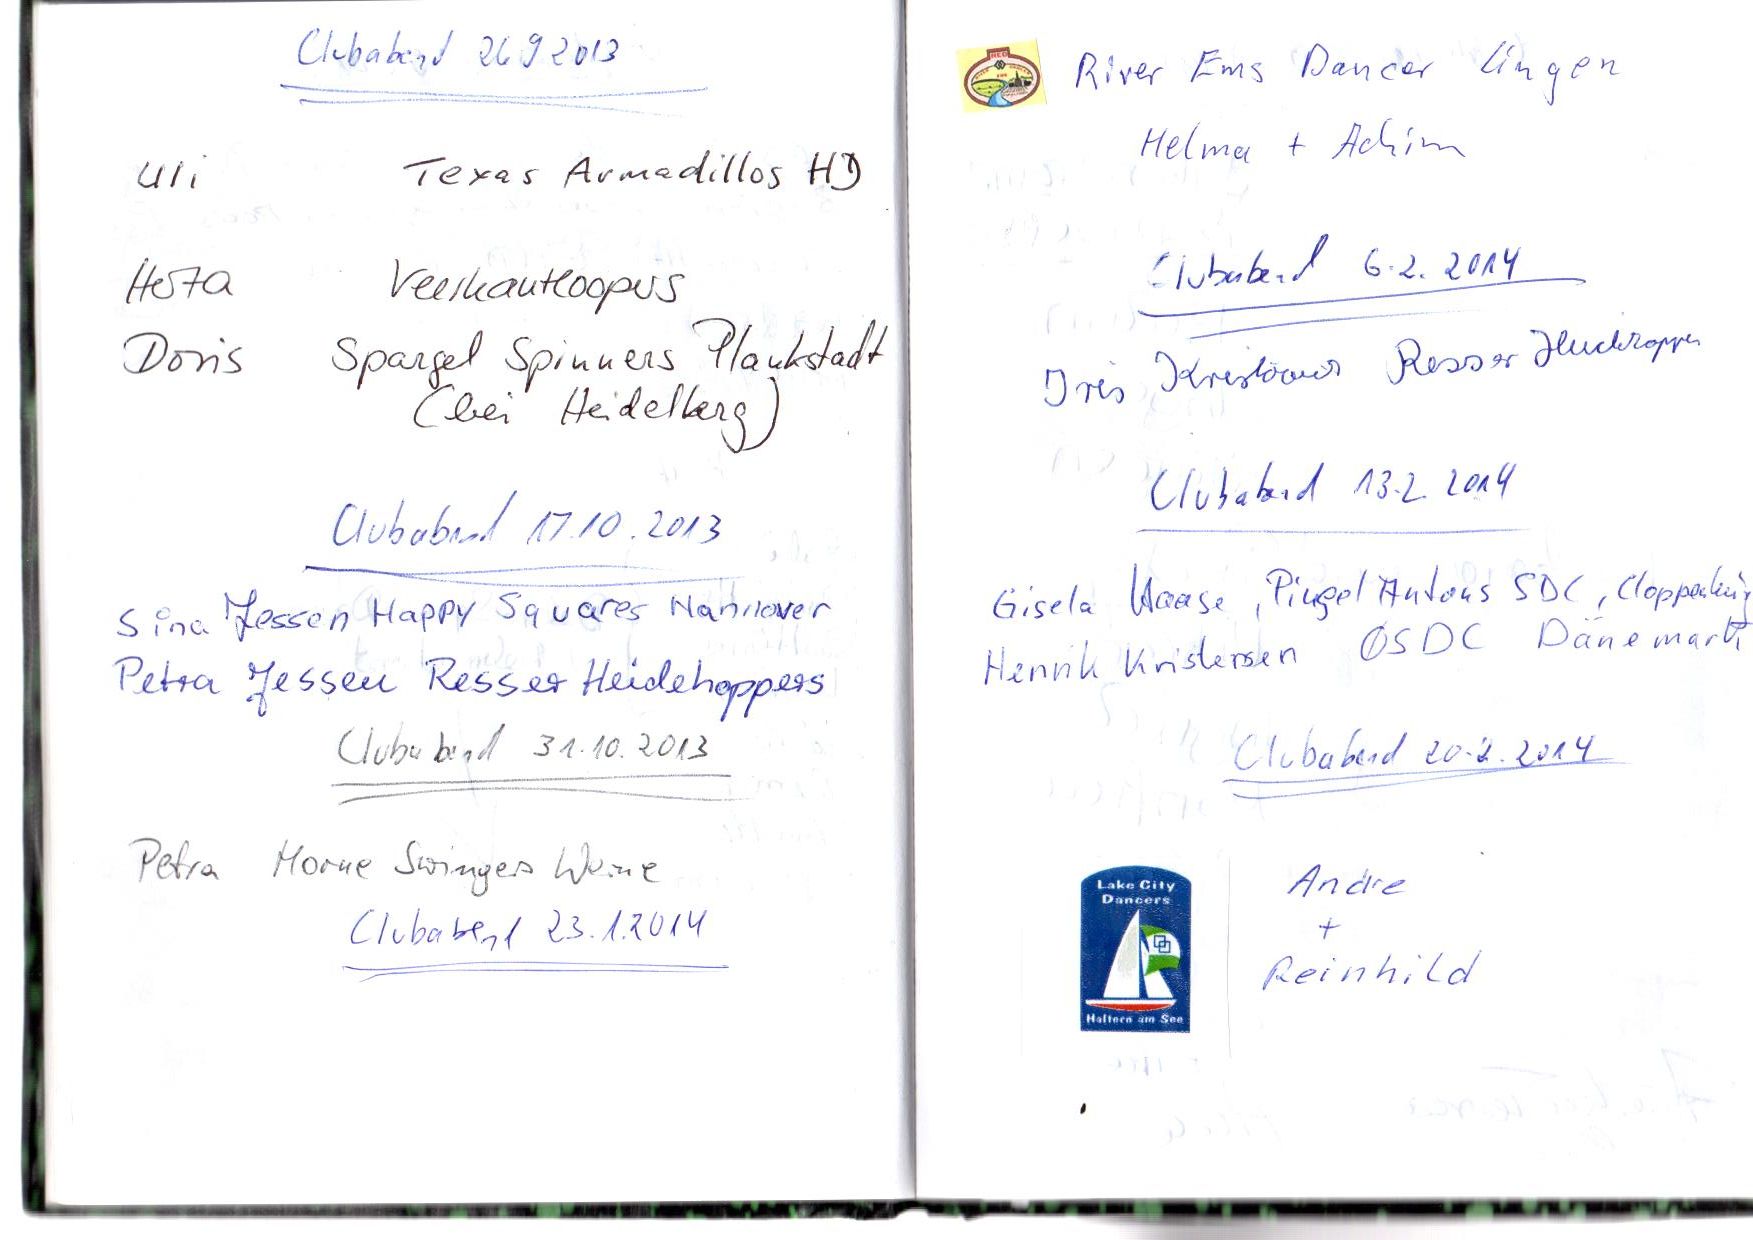 Clubabend 26 9 2013
Uli Texas Armadillos HD
Veerkantloopers
Doris Spargel Spinners Plankstadt
(bei Heidelberg)
Clubabend 17.10.2013
Sina Jessen Happy Squares Hannover
Petra Jessen Resser Heidehoppers
Clubabend 31.10.2013
Petra Horne Swingers Werne
Clubabend 23.1.2014
River Ems Dancer Lingen
Helma + Achim
Clubabend 6.2.2014
Iris Resser
Clubabend 13.2.2014
Gisela Haase, Pingel Antons SDC, Cloppenburg
Henrik Kristensen ØSDC Dänemark
Clubabend 20.2.2014
Lake City
Dancers
Haltern am See
Andre
+
Reinhild